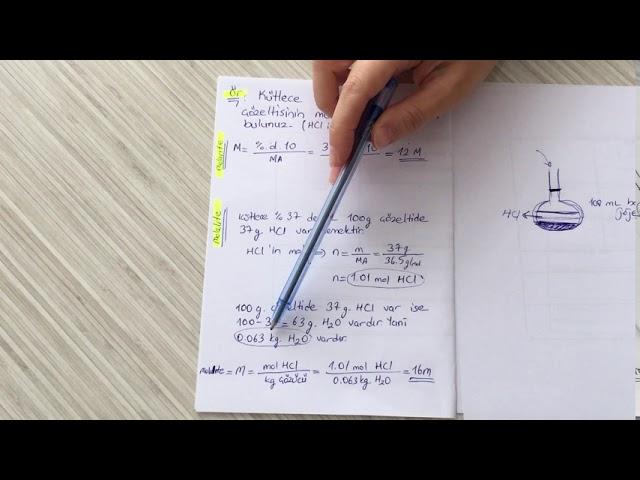 Ör: Kütlece
çözeltisinin
bulunuz. (HCl
Molarite M = %.d.10 / MA = 10 = 12 M
Molalite
Kütlece % 37 100g çözeltide
37g. HCl var demektir.
HCl'in n = m / MA = 37g / 36.5g/mol
n = 1.01 mol HCl
100 g. çözeltide 37g. HCl var ise
100 - 3 = 63 g. H2O vardır. Yani
0.063 kg. H2O vardır.
Molalite = m = mol HCl / kg çözücü = 1.01 mol HCl / 0.063 kg. H2O = 16m
HCl
100 mL